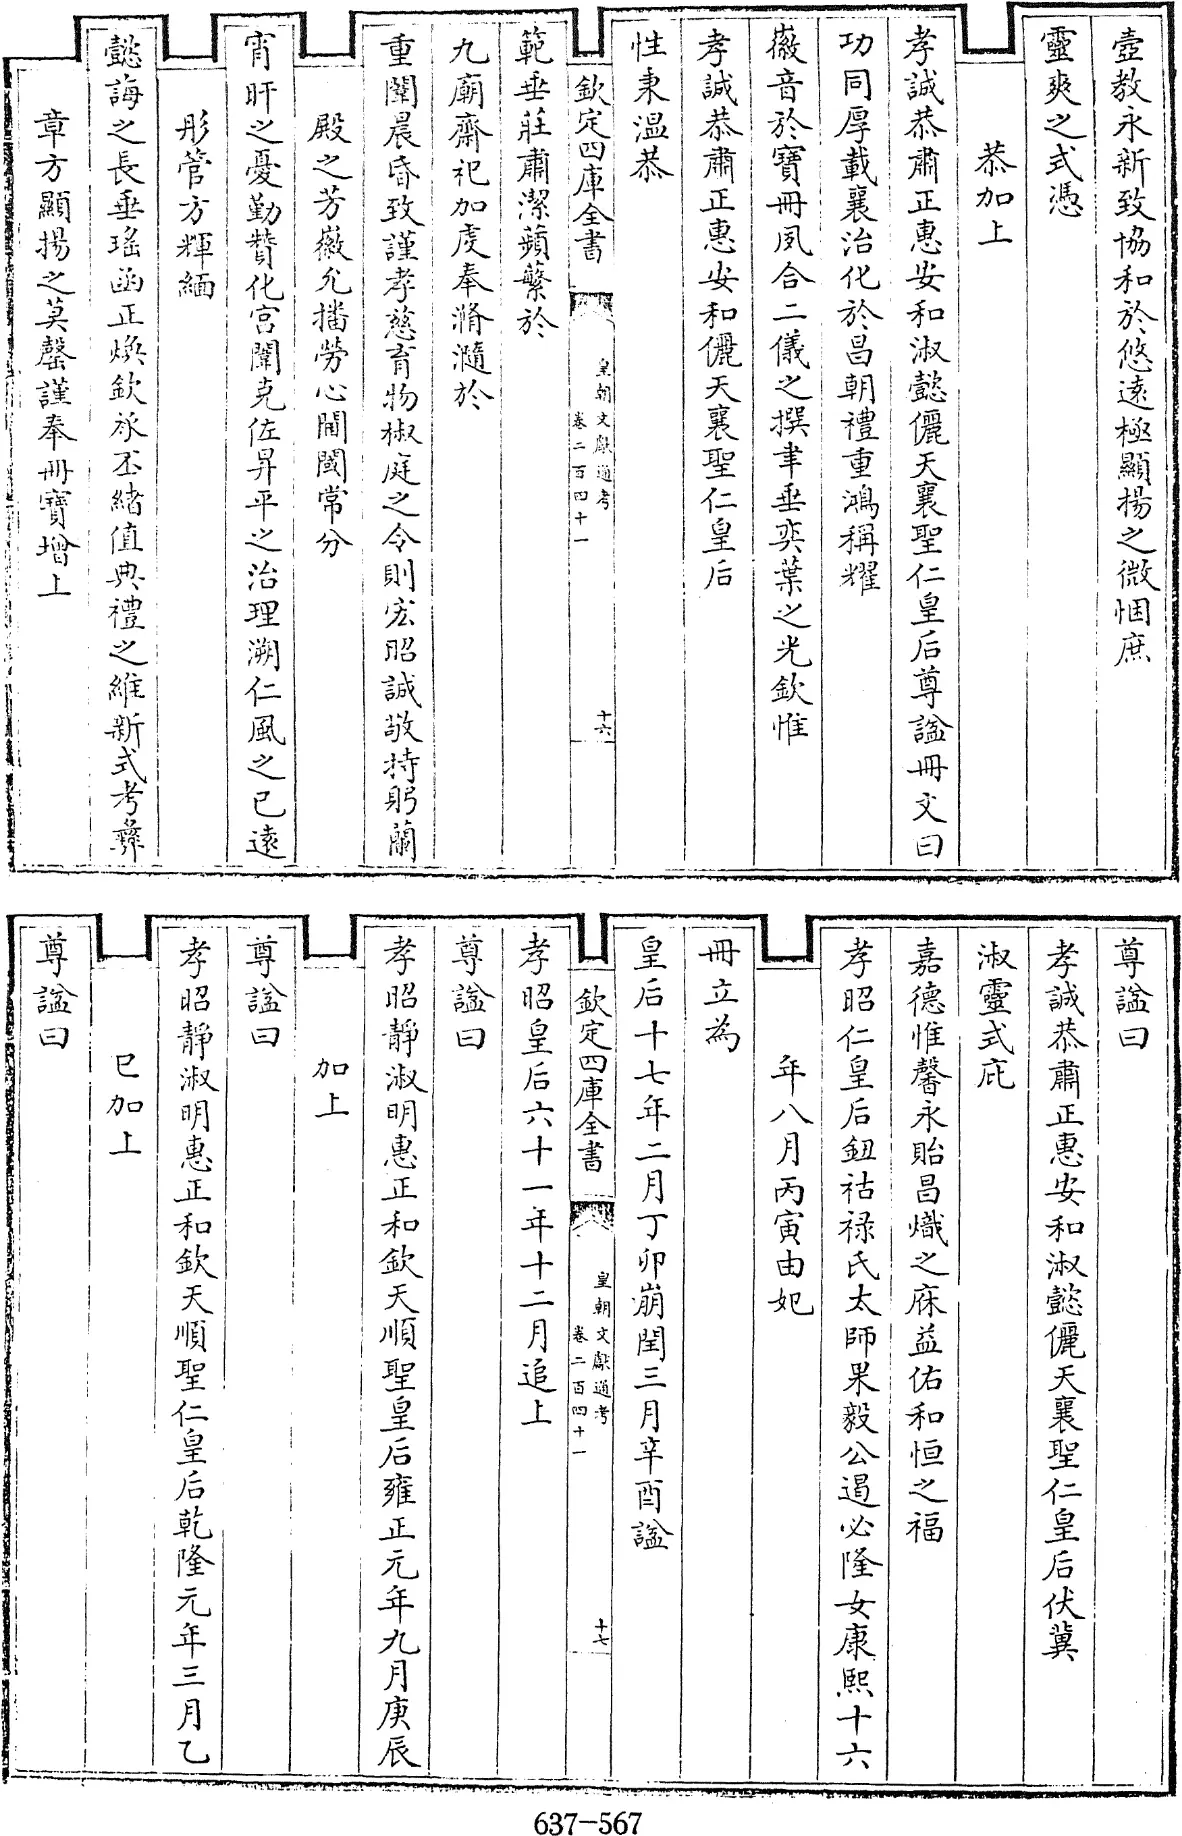 壼教永新致協和於悠遠極顯揚之微悃庶
靈爽之式憑
恭加上
孝誠恭肅正惠安和淑懿儷天襄聖仁皇后尊諡冊文曰
功同厚載襄治化於昌朝禮重鴻稱耀
徽音於寶冊夙合二儀之撰聿垂奕葉之光欽惟
孝誠恭肅正惠安和儷天襄聖仁皇后
性秉温恭
欽定四庫全書
皇朝文獻通考
卷二百四十一
十六
範垂莊肅潔蘋蘩於
九廟齋祀加虔奉滫瀡於
重闈晨昏致謹孝慈育物椒庭之令則宏昭誠敬持躬蘭
殿之芳徽允播勞心閫閾常分
宵旰之憂勤贊化宮闈克佐昇平之治理溯仁風之已遠
彤管方輝緬
懿誨之長垂瑤函正煥欽承丕緒值典禮之維新式考彞
章方顯揚之莫罄謹奉冊寶增上
尊諡曰
孝誠恭肅正惠安和淑懿儷天襄聖仁皇后伏冀
淑靈式庇
嘉德惟馨永貽昌熾之庥益佑和恒之福
孝昭仁皇后鈕祜禄氏太師果毅公遏必隆女康熙十六
年八月丙寅由妃
冊立為
皇后十七年二月丁卯崩閏三月辛酉諡
欽定四庫全書
皇朝文獻通考
卷二百四十一
十七
孝昭皇后六十一年十二月追上
尊諡曰
孝昭靜淑明惠正和欽天順聖皇后雍正元年九月庚辰
加上
尊諡曰
孝昭靜淑明惠正和欽天順聖仁皇后乾隆元年三月乙
巳加上
尊諡曰
637-567